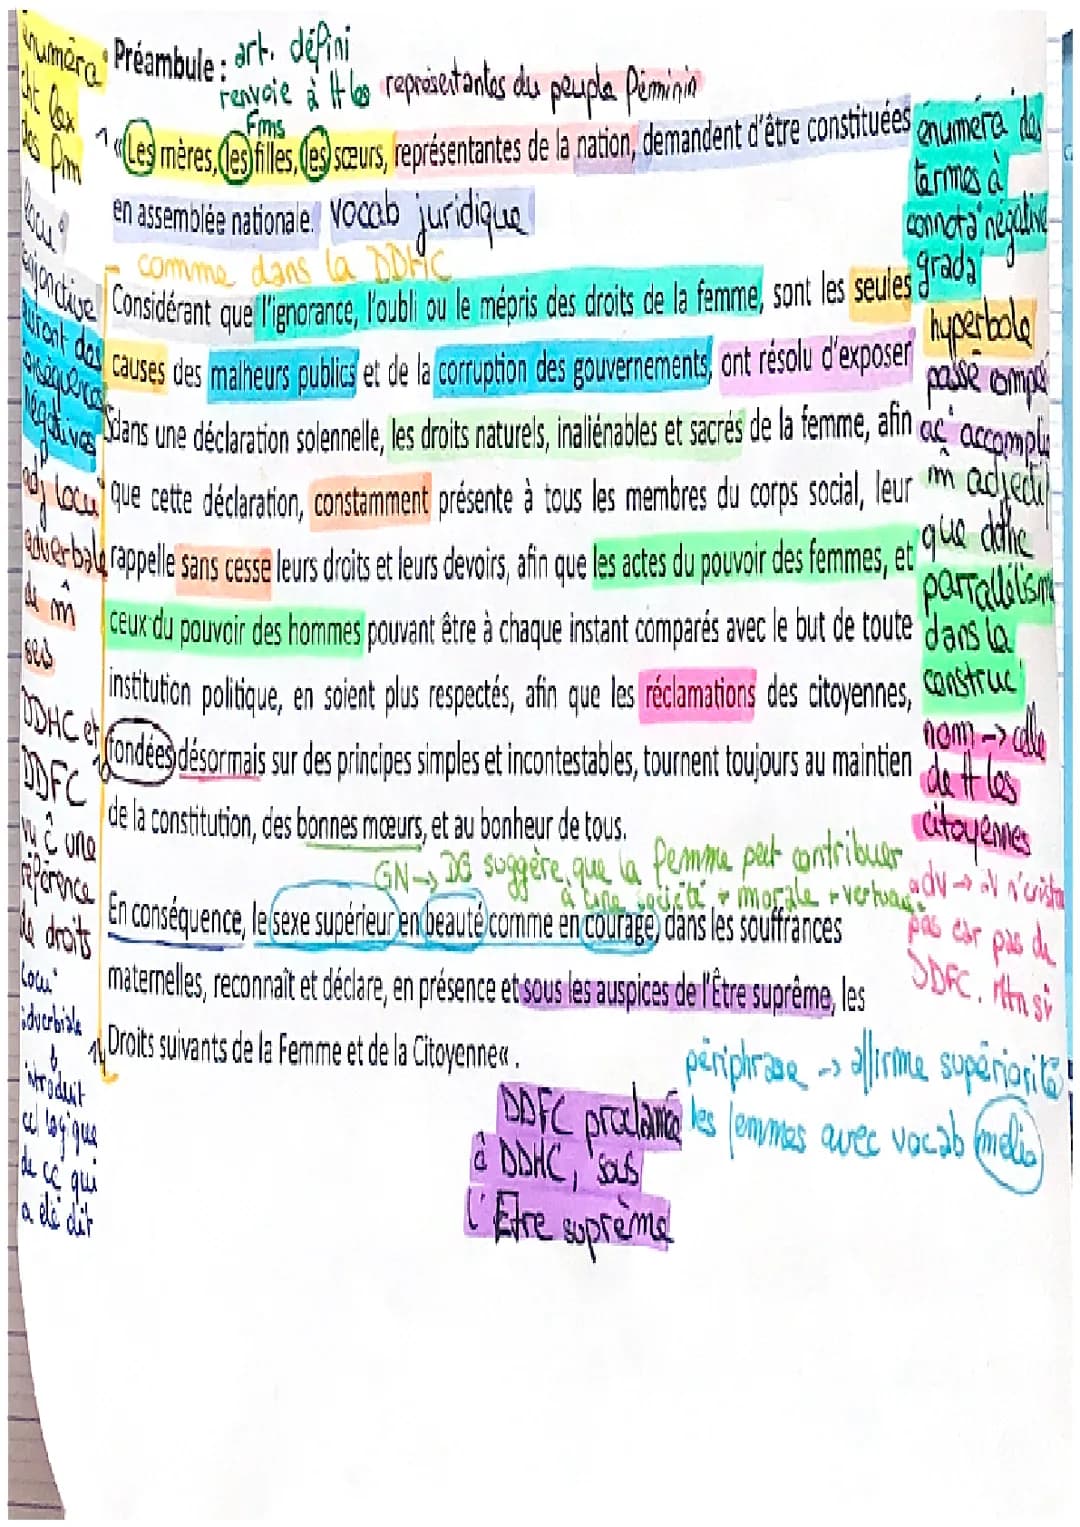 Préambule :
art. défini
renvoie à tt les
fms
représentantes du peuple féminin
« Les mères, les filles, les sœurs, représentantes de la nation, demandent d'être constituées
en assemblée nationale.
vocab juridique
comme dans la DDHC
Considérant que l'ignorance, l'oubli ou le mépris des droits de la femme, sont les seules
causes des malheurs publics et de la corruption des gouvernements, ont résolu d'exposer
dans une déclaration solennelle, les droits naturels, inaliénables et sacrés de la femme, afin
que cette déclaration, constamment présente à tous les membres du corps social, leur
rappelle sans cesse leurs droits et leurs devoirs, afin que les actes du pouvoir des femmes, et
ceux du pouvoir des hommes pouvant être à chaque instant comparés avec le but de toute
institution politique, en soient plus respectés, afin que les réclamations des citoyennes,
fondées désormais sur des principes simples et incontestables, tournent toujours au maintien
de la constitution, des bonnes mœurs, et au bonheur de tous.
GN → DG suggère que la femme peut contribuer
à une société + morale + vertueuse
En conséquence, le sexe supérieur en beauté comme en courage, dans les souffrances
maternelles, reconnaît et déclare, en présence et sous les auspices de l'Être suprême, les
Droits suivants de la Femme et de la Citoyenne« .
énuméra°
cht lex
des fm
locu°
conjonctive
auront des
conséquences
négatives
adj locu°
adverbale
de m̂
sens
DDHC et
DDFC
une
référence
de droits
Locu°
adverbiale
introduit
logique
de ce qui
a été dit
énuméra° des
termes à
connota° négative
grada°
hyperbole
passé composé
ac° accompli
m̂ adjectif
que ddhc
parrallélisme
dans la
construc°
nom → celle
de tt les
citoyennes
adv → n'exista
pas car pas de
DDFC.
périphrase → affirme supériorité
les femmes avec vocab mélio
DDFC proclamée
DDHC, sous
l'Être suprême